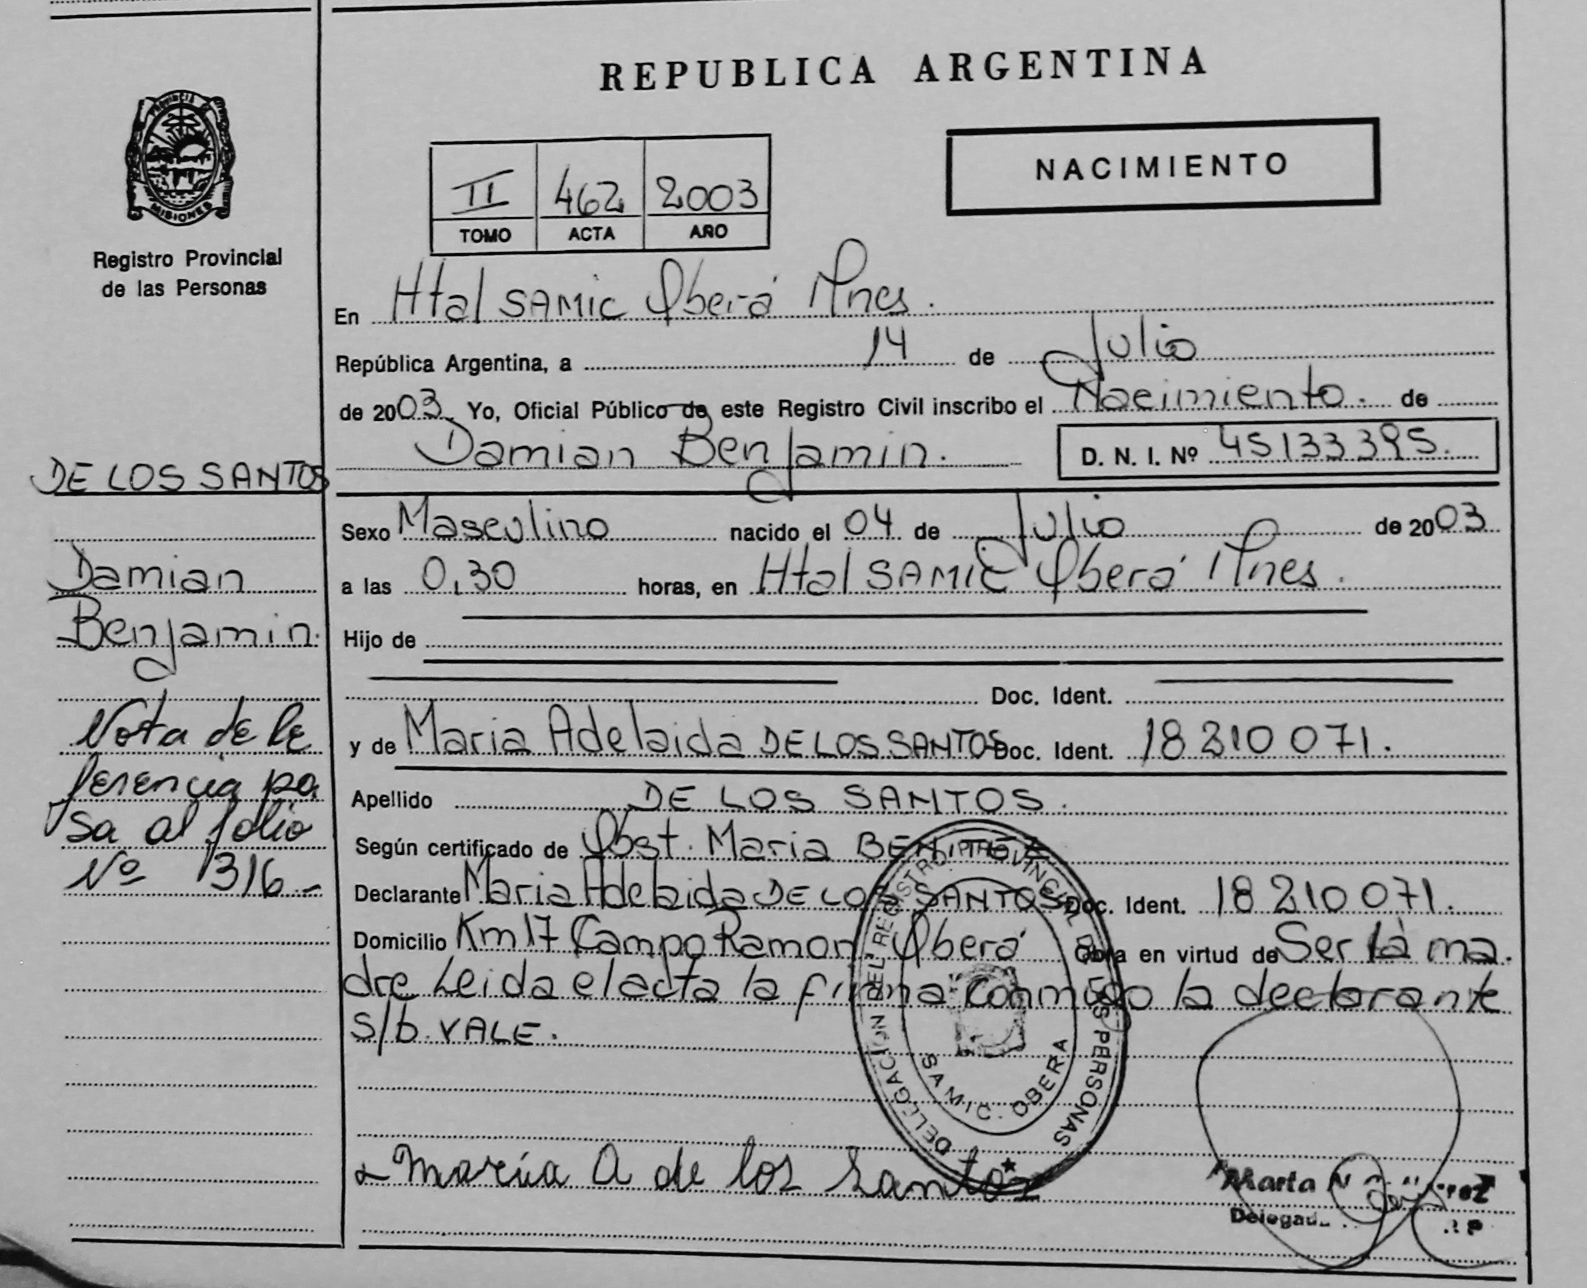 REPUBLICA ARGENTINA
PROVINCIA DE
MISIONES
Registro Provincial
de las Personas
NACIMIENTO
II 462 2003
TOMO ACTA AÑO
En Htal SAMIC Oberá Mnes.
República Argentina, a 14 de Julio
de 2003 Yo, Oficial Público de este Registro Civil inscribo el Nacimiento. de
Damian Benjamin. D. N. I. Nº 45133395.
DE LOS SANTOS
Damian
Benjamin.
Nota de Re
ferencia pa
sa al folio
Nº 1316-
Sexo Masculino nacido el 04 de Julio de 2003
a las 0,30 horas, en Htal SAMIC Oberá Mnes.
Hijo de
Doc. Ident.
y de Maria Adelaida DE LOS SANTOS Doc. Ident. 18 210 071.
Apellido DE LOS SANTOS.
Según certificado de Obst. Maria BENITEZ
Declarante Maria Adelaida DE LOS SANTOS Doc. Ident. 18 210 071.
Domicilio Km 17 Campo Ramon Oberá Obra en virtud de Ser la ma.
dre Leida el acta la firma conmigo la declarante
s/b. VALE.
DELEGACION DEL REGISTRO PROVINCIAL DE LAS PERSONAS
SAMIC. OBERA
Maria A de los Santos
Marta